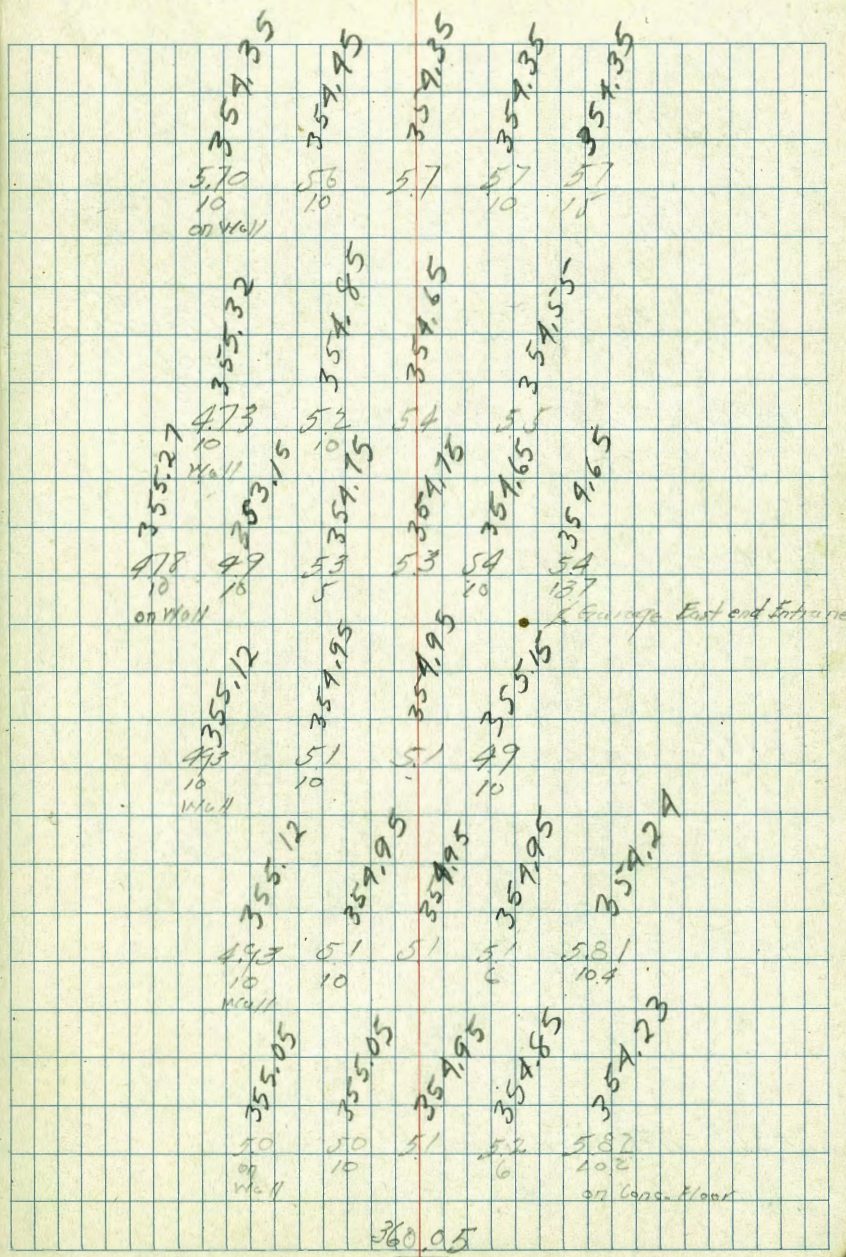 354.35 354.45 354.35 354.35 354.35
5.70 5.6 5.7 5.7 5.7
10 10 10 15
on Wall
355.32 354.85 354.65 354.55
4.73 5.2 5.4 5.5
10 10
Wall
355.27 353.15 354.75 354.75 354.65 354.65
4.78 4.9 5.3 5.3 5.4 5.4
10 10 5 10 137
on Wall
Garage East end Entrance
355.12 354.95 354.95 355.15
4.93 5.1 5.1 4.9
10 10 10
Wall
355.12 354.95 354.95 354.95 354.24
4.93 5.1 5.1 5.1 5.81
10 10 6 10.4
Wall
355.05 355.05 354.95 354.85 354.23
5.0 5.0 5.1 5.2 5.82
on 10 6 10.2
Wall
on Conc. Floor
360.05